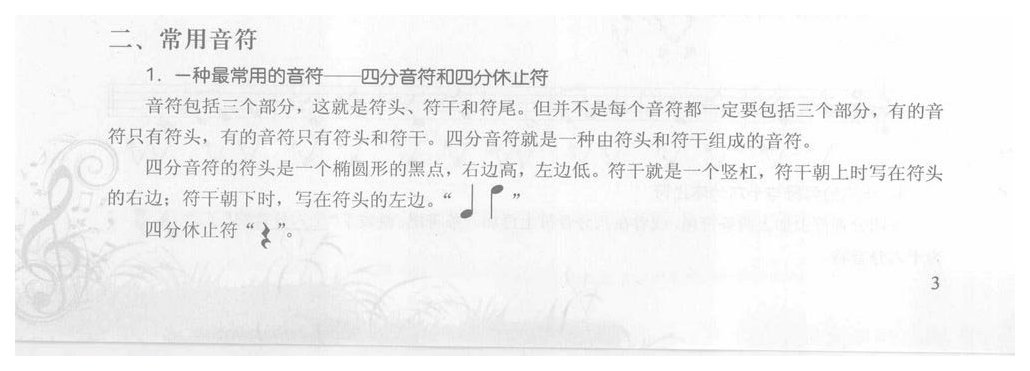 二、常用音符
1. 一种最常用的音符——四分音符和四分休止符
音符包括三个部分，这就是符头、符干和符尾。但并不是每个音符都一定要包括三个部分，有的音
符只有符头，有的音符只有符头和符干。四分音符就是一种由符头和符干组成的音符。
四分音符的符头是一个椭圆形的黑点，右边高，左边低。符干就是一个竖杠，符干朝上时写在符头
的右边；符干朝下时，写在符头的左边。“ ”
四分休止符“ ”。
3